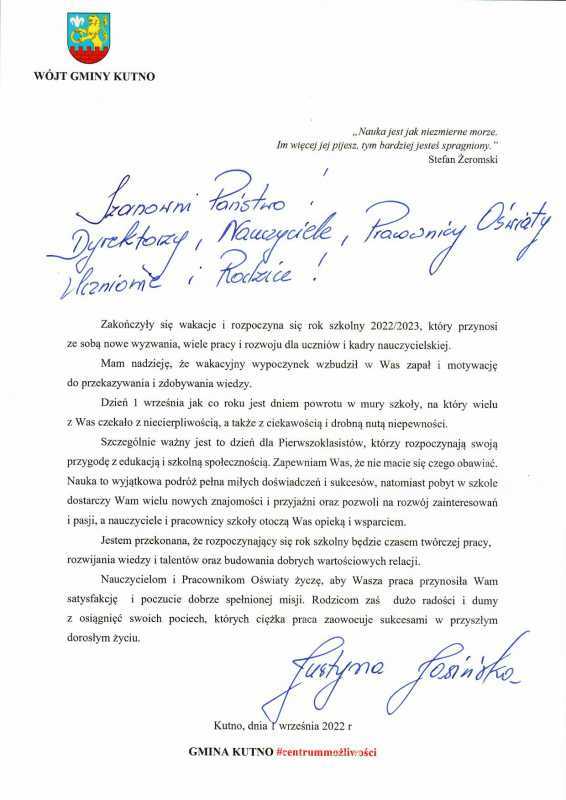 WÓJT GMINY KUTNO
„Nauka jest jak niezmierne morze.
Im więcej jej pijesz, tym bardziej jesteś spragniony.”
Stefan Żeromski
Szanowni Państwo !
Dyrektorzy, Nauczyciele, Pracownicy Oświaty
Uczniowie i Rodzice !
Zakończyły się wakacje i rozpoczyna się rok szkolny 2022/2023, który przynosi
ze sobą nowe wyzwania, wiele pracy i rozwoju dla uczniów i kadry nauczycielskiej.
Mam nadzieję, że wakacyjny wypoczynek wzbudził w Was zapał i motywację
do przekazywania i zdobywania wiedzy.
Dzień 1 września jak co roku jest dniem powrotu w mury szkoły, na który wielu
z Was czekało z niecierpliwością, a także z ciekawością i drobną nutą niepewności.
Szczególnie ważny jest to dzień dla Pierwszoklasistów, którzy rozpoczynają swoją
przygodę z edukacją i szkolną społecznością. Zapewniam Was, że nie macie się czego obawiać.
Nauka to wyjątkowa podróż pełna miłych doświadczeń i sukcesów, natomiast pobyt w szkole
dostarczy Wam wielu nowych znajomości i przyjaźni oraz pozwoli na rozwój zainteresowań
i pasji, a nauczyciele i pracownicy szkoły otoczą Was opieką i wsparciem.
Jestem przekonana, że rozpoczynający się rok szkolny będzie czasem twórczej pracy,
rozwijania wiedzy i talentów oraz budowania dobrych wartościowych relacji.
Nauczycielom i Pracownikom Oświaty życzę, aby Wasza praca przynosiła Wam
satysfakcję i poczucie dobrze spełnionej misji. Rodzicom zaś dużo radości i dumy
z osiągnięć swoich pociech, których ciężka praca zaowocuje sukcesami w przyszłym
dorosłym życiu.
Justyna Jasińska
Kutno, dnia 1 września 2022 r
GMINA KUTNO #centrummożliwości